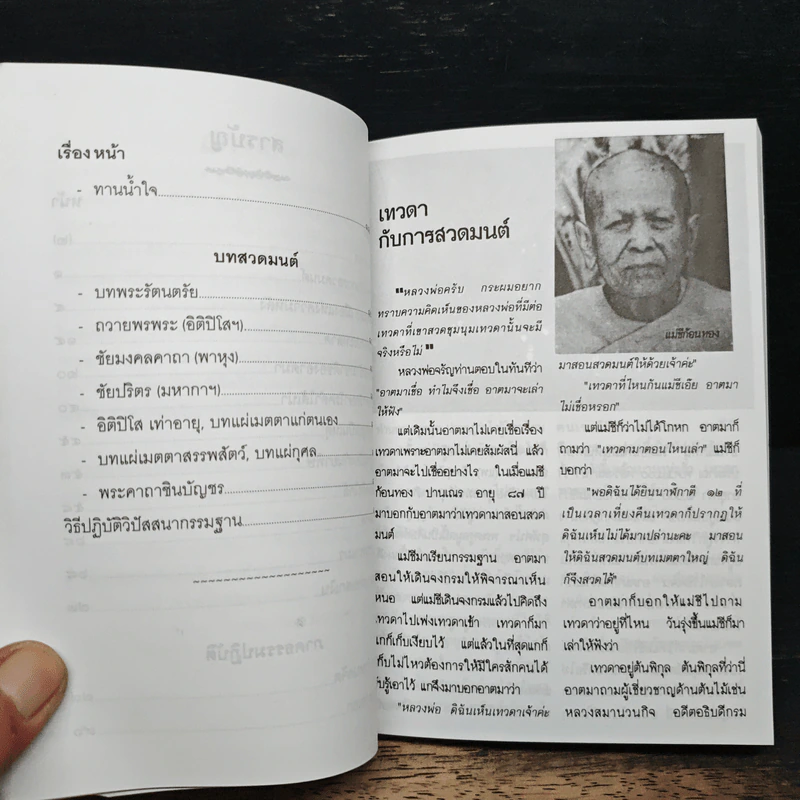 เรื่อง หน้า
- ทานน้ำใจ
บทสวดมนต์
- บทพระรัตนตรัย
- ถวายพรพระ (อิติปิโสฯ)
- ชัยมงคลคาถา (พาหุง)
- ชัยปริตร (มหากาฯ)
- อิติปิโส เท่าอายุ, บทแผ่เมตตาแก่ตนเอง
- บทแผ่เมตตาสรรพสัตว์, บทแผ่กุศล
- พระคาถาชินบัญชร
วิธีปฏิบัติวิปัสสนากรรมฐาน
เทวดา
กับการสวดมนต์
"หลวงพ่อครับ กระผมอยาก
ทราบความคิดเห็นของหลวงพ่อที่มีต่อ
เทวดาที่เขาสวดชุมนุมเทวดานั้นจะมี
จริงหรือไม่"
หลวงพ่อจรัญท่านตอบในทันทีว่า
"อาตมาเชื่อ ทำไมจึงเชื่อ อาตมาจะเล่า
ให้ฟัง"
แต่เดิมนั้นอาตมาไม่เคยเชื่อเรื่อง
เทวดาเพราะอาตมาไม่เคยสัมผัสนี่ แล้ว
อาตมาจะไปเชื่ออย่างไร ในเมื่อแม่ชี
ก้อนทอง ปานเณร อายุ ๘๗ ปี
มาบอกกับอาตมาว่าเทวดามาสอนสวด
มนต์
แม่ชีมาเรียนกรรมฐาน อาตมา
สอนให้เดินจงกรมให้พิจารณาเห็น
หนอ แต่แม่ชีเดินจงกรมแล้วไปคิดถึง
เทวดาไปเพ่งเทวดาเข้า เทวดาก็มา
แกก็เก็บเงียบไว้ แต่แล้วในที่สุดแกก็
ก็บไม่ไหวต้องการให้มีใครสักคนได้
รับรู้เอาไว้ แกจึงมาบอกอาตมาว่า
"หลวงพ่อ ดิฉันเห็นเทวดาเจ้าค่ะ
แม่ชีก้อนทอง
มาสอนสวดมนต์ให้ด้วยเจ้าค่ะ"
"เทวดาที่ไหนกันแม่ชีเอ๊ย อาตมา
ไม่เชื่อหรอก"
แต่แม่ชีก็ว่าไม่ได้โกหก อาตมาก็
ถามว่า "เทวดามาตอนไหนเล่า" แม่ชีก็
บอกว่า
"พอดิฉันได้ยินนาฬิกาตี ๑๒ ที่
เป็นเวลาเที่ยงคืนเทวดาก็ปรากฏให้
ดิฉันเห็นไม่ได้มาเปล่านะคะ มาสอน
ให้ดิฉันสวดมนต์บทเมตตาใหญ่ ดิฉัน
ก็จึงสวดได้"
อาตมาก็บอกให้แม่ชีไปถาม
เทวดาว่าอยู่ที่ไหน วันรุ่งขึ้นแม่ชีก็มา
เล่าให้ฟังว่า
เทวดาอยู่ต้นพิกุล ต้นพิกุลที่ว่านี่
อาตมาถามผู้เชี่ยวชาญด้านต้นไม้เช่น
หลวงสมานวนกิจ อดีตอธิบดีกรม